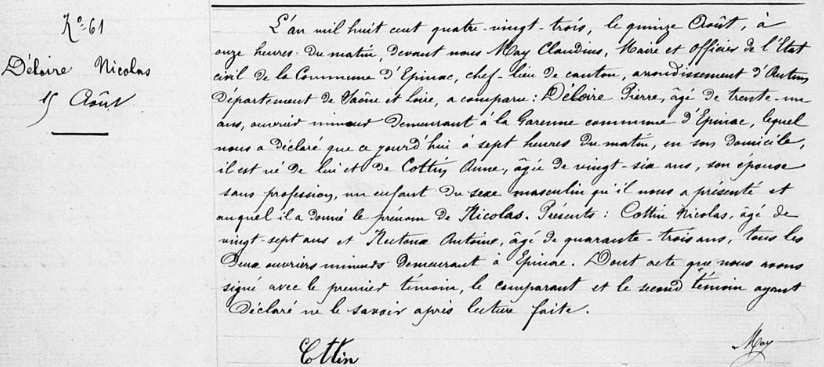 N° 61
Déloire Nicolas
15 Août
L'an mil huit cent quatre-vingt-trois, le quinze Août, à
onze heures du matin, devant nous May Claudius, Maire et Officier de l'Etat
civil de la Commune d'Epinac, chef-lieu de canton, arrondissement d'Autun
Département de Saône et Loire, a comparu : Déloire Pierre, âgé de trente-un
ans, ouvrier mineur demeurant à la Garenne commune d'Epinac, lequel
nous a déclaré que ce jourd'hui à sept heures du matin, en son domicile,
il est né de lui et de Cottin Anne, âgée de vingt-six ans, son épouse
sans profession, un enfant du sexe masculin qu'il nous a présenté et
auquel il a donné le prénom de Nicolas. Présents : Cottin Nicolas, âgé de
vingt-sept ans et Antoine, âgé de quarante-trois ans, tous les
deux ouvriers mineurs demeurant à Epinac. Dont acte que nous avons
signé avec le premier témoin, le comparant et le second témoin ayant
déclaré ne le savoir après lecture faite.
Cottin
May